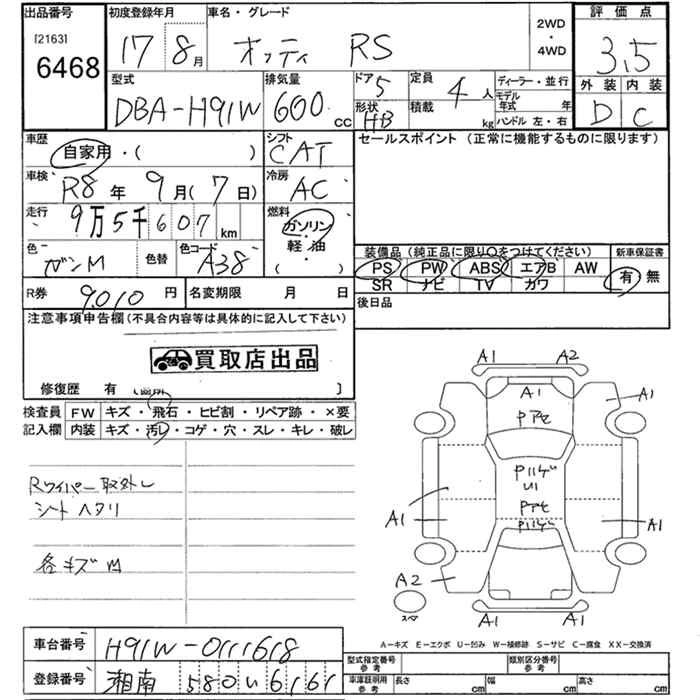 出品番号 初度登録年月 車名・グレード 2WD・4WD 評価点
[2163]
6468 17年8月 オッティ RS 3.5
型式 排気量 ドア 5 定員 4人 ディーラー・並行 外装 内装
DBA-H91W 600cc 形状 HB 積載 kg モデル年式 年 D C
ハンドル 左・右
車歴 自家用・( ) シフト CAT セールスポイント (正常に機能するものに限ります)
車検 R8年 9月(7日) 冷房 AC
走行 9万5千607km 燃料 ガソリン・軽油 ( )
色 ガンM 色替 色コード A38
装備品 (純正品に限り○をつけてください) 新車保証書
PS PW ABS エアB AW 有・無
SR ナビ TV カワ
R券 9,010円 名変期限 月 日 後日品
注意事項申告欄 (不具合内容等は具体的に記入して下さい)
買取店出品
修復歴 有 〔箇所 〕
検査員記入欄 FW キズ・飛石・ヒビ割・リペア跡・×要
内装 キズ・汚レ・コゲ・穴・スレ・キレ・破レ
Rワイパー取外し
シートヘタリ
各キズM
A1 A2
A1 A1
Pアセ
Pハゲ
U1
Pアセ
Pハゲ
A1 A1
A2
スペア
A1 A1
A-キズ E-エクボ U-凹み W-補修跡 S-サビ C-腐食 XX-交換済
車台番号 H91W-0111618
登録番号 湘南 580 い 6161
型式指定番号 参考 類別区分番号 参考
車庫証明用 参考 長さ cm 幅 cm 高さ cm